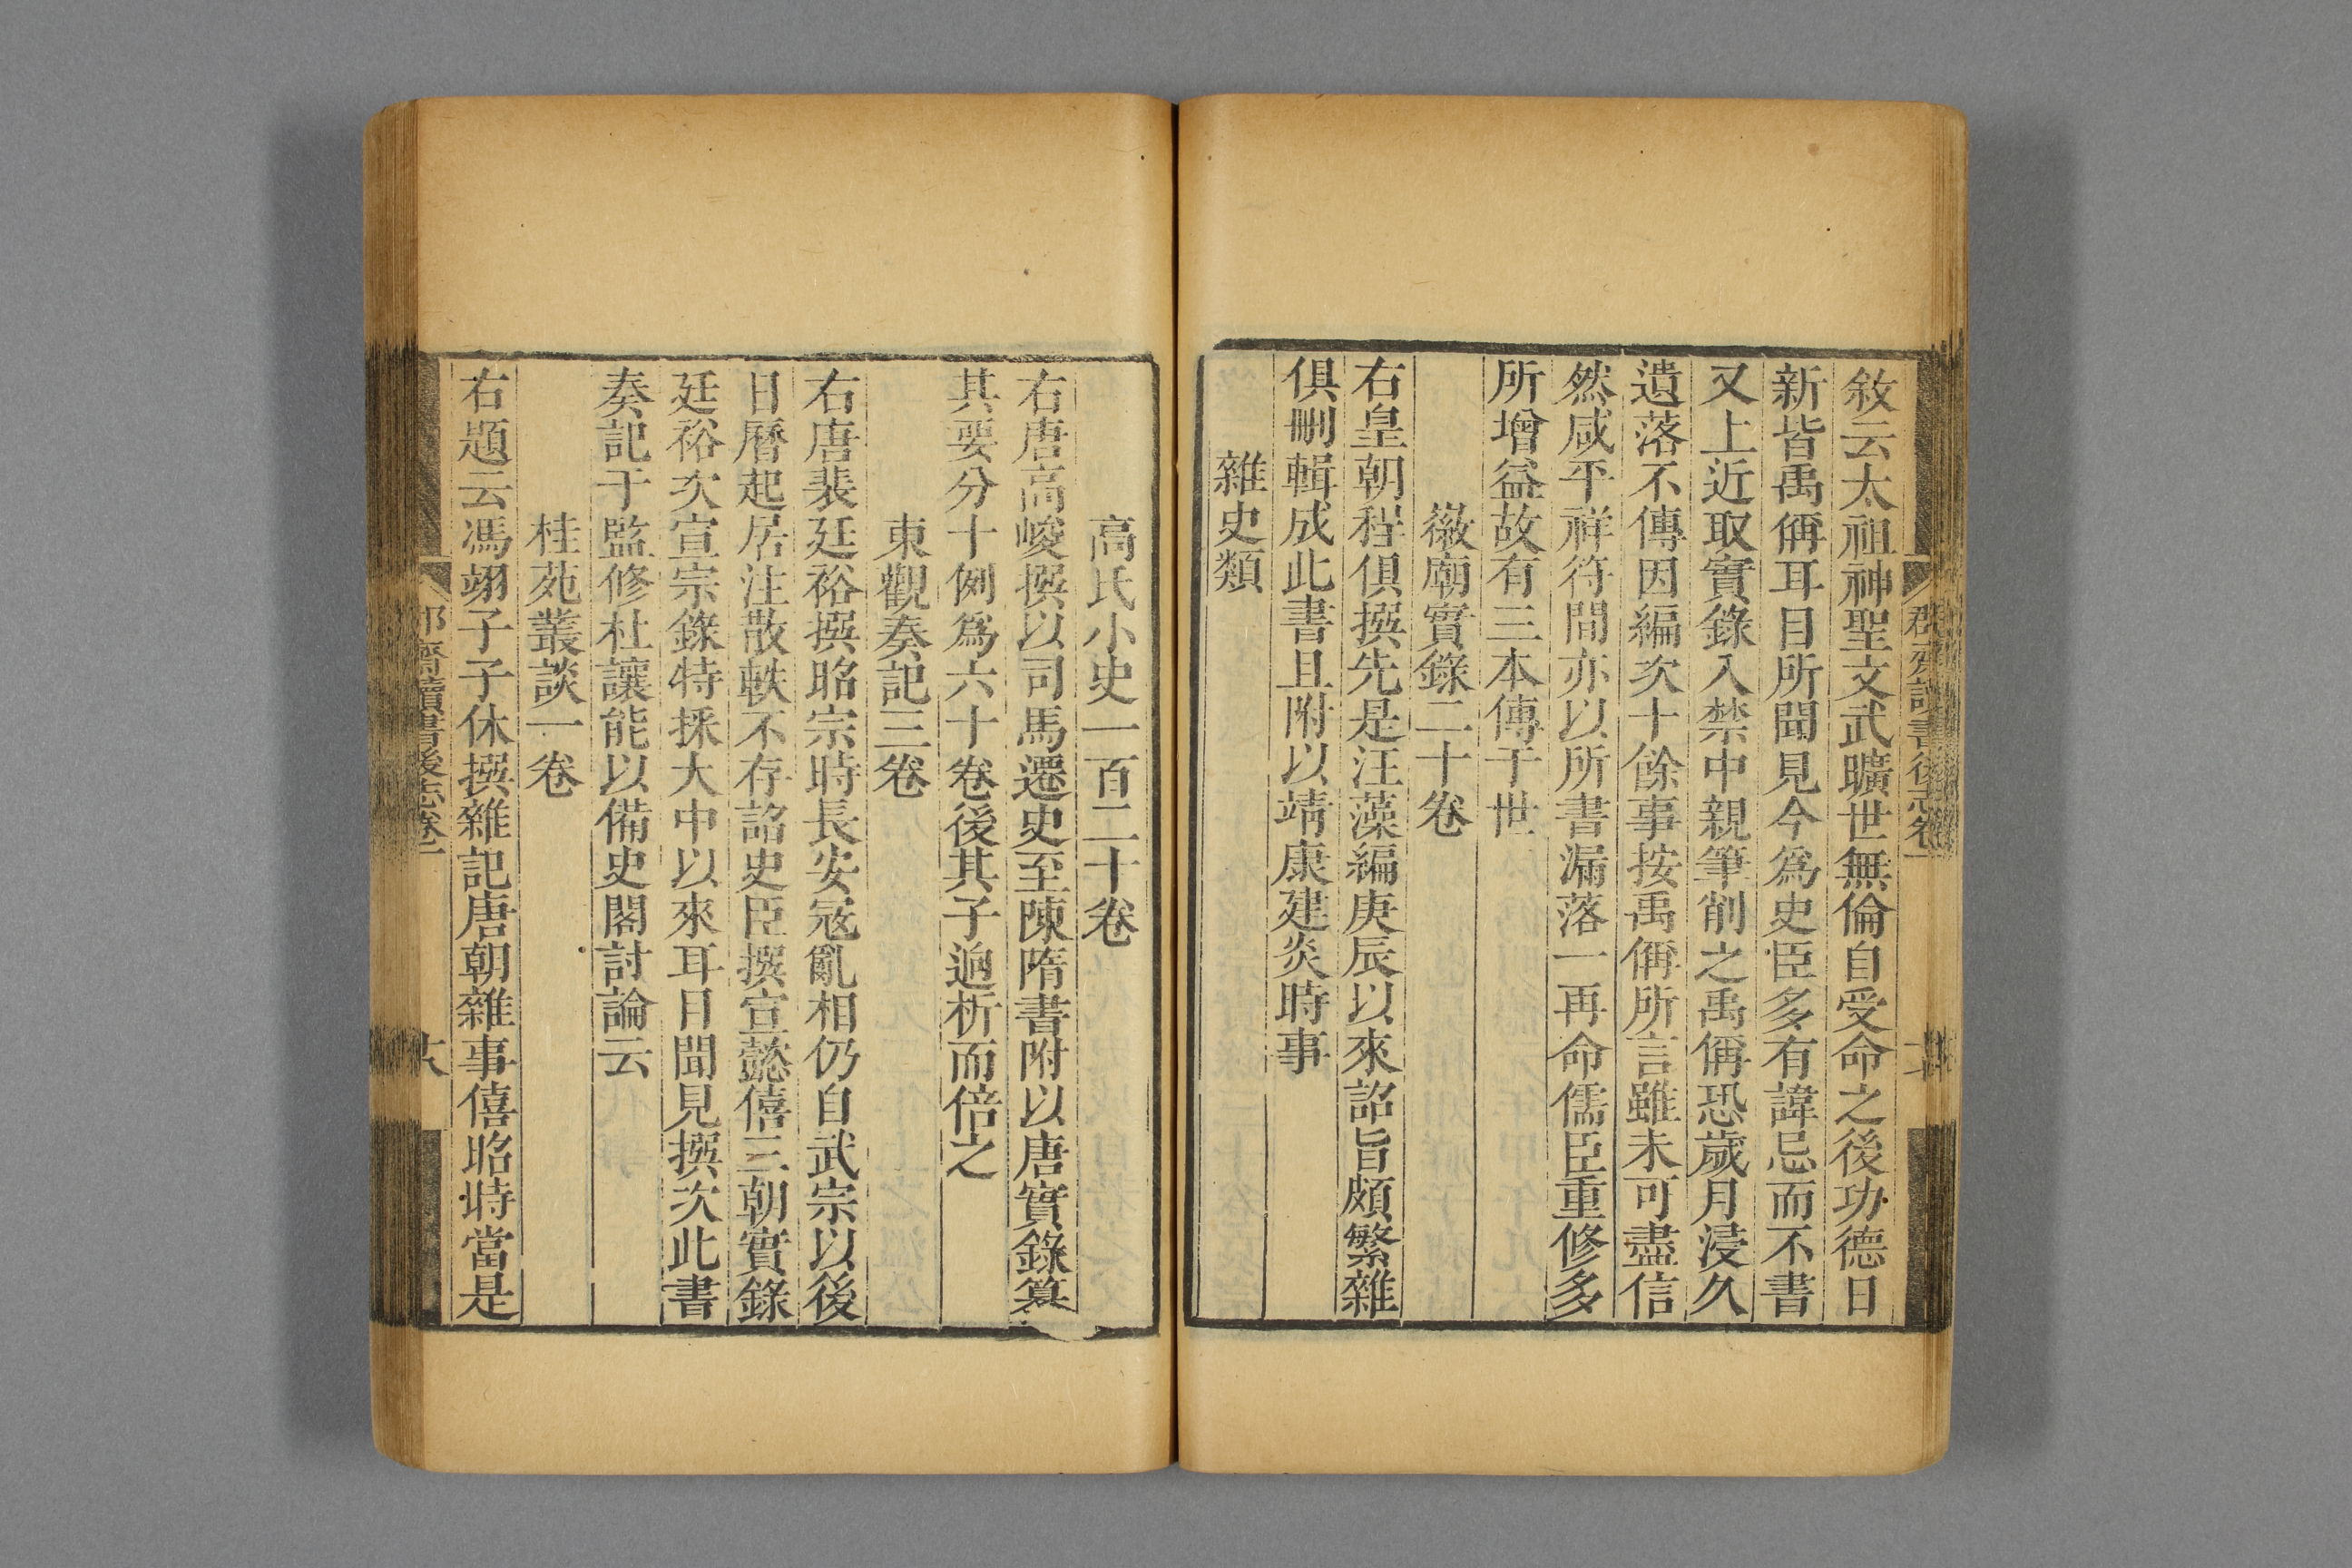 敘云太祖神聖文武曠世無倫自受命之後功德日
新皆禹偁耳目所聞見今爲史臣多有諱忌而不書
又上近取實錄入禁中親筆削之禹偁恐歲月浸久
遺落不傳因編次十餘事按禹偁所言雖未可盡信
然咸平祥符間亦以所書漏落一再命儒臣重修多
所增益故有三本傳于世
徽廟實錄二十卷
右皇朝程俱撰先是汪藻編庚辰以來詔旨頗繁雜
俱刪輯成此書且附以靖康建炎時事
雜史類
高氏小史一百二十卷
右唐高峻撰以司馬遷史至陳隋書附以唐實錄纂
其要分十例爲六十卷後其子逈析而倍之
東觀奏記三卷
右唐裴廷裕撰昭宗時長安宼亂相仍自武宗以後
日曆起居注散軼不存詔史臣撰宣懿僖三朝實錄
廷裕次宣宗錄特採大中以來耳目聞見撰次此書
奏記于監修杜讓能以備史閣討論云
桂苑叢談一卷
右題云馮翊子子休撰雜記唐朝雜事僖昭時當是
齋讀書後志卷一